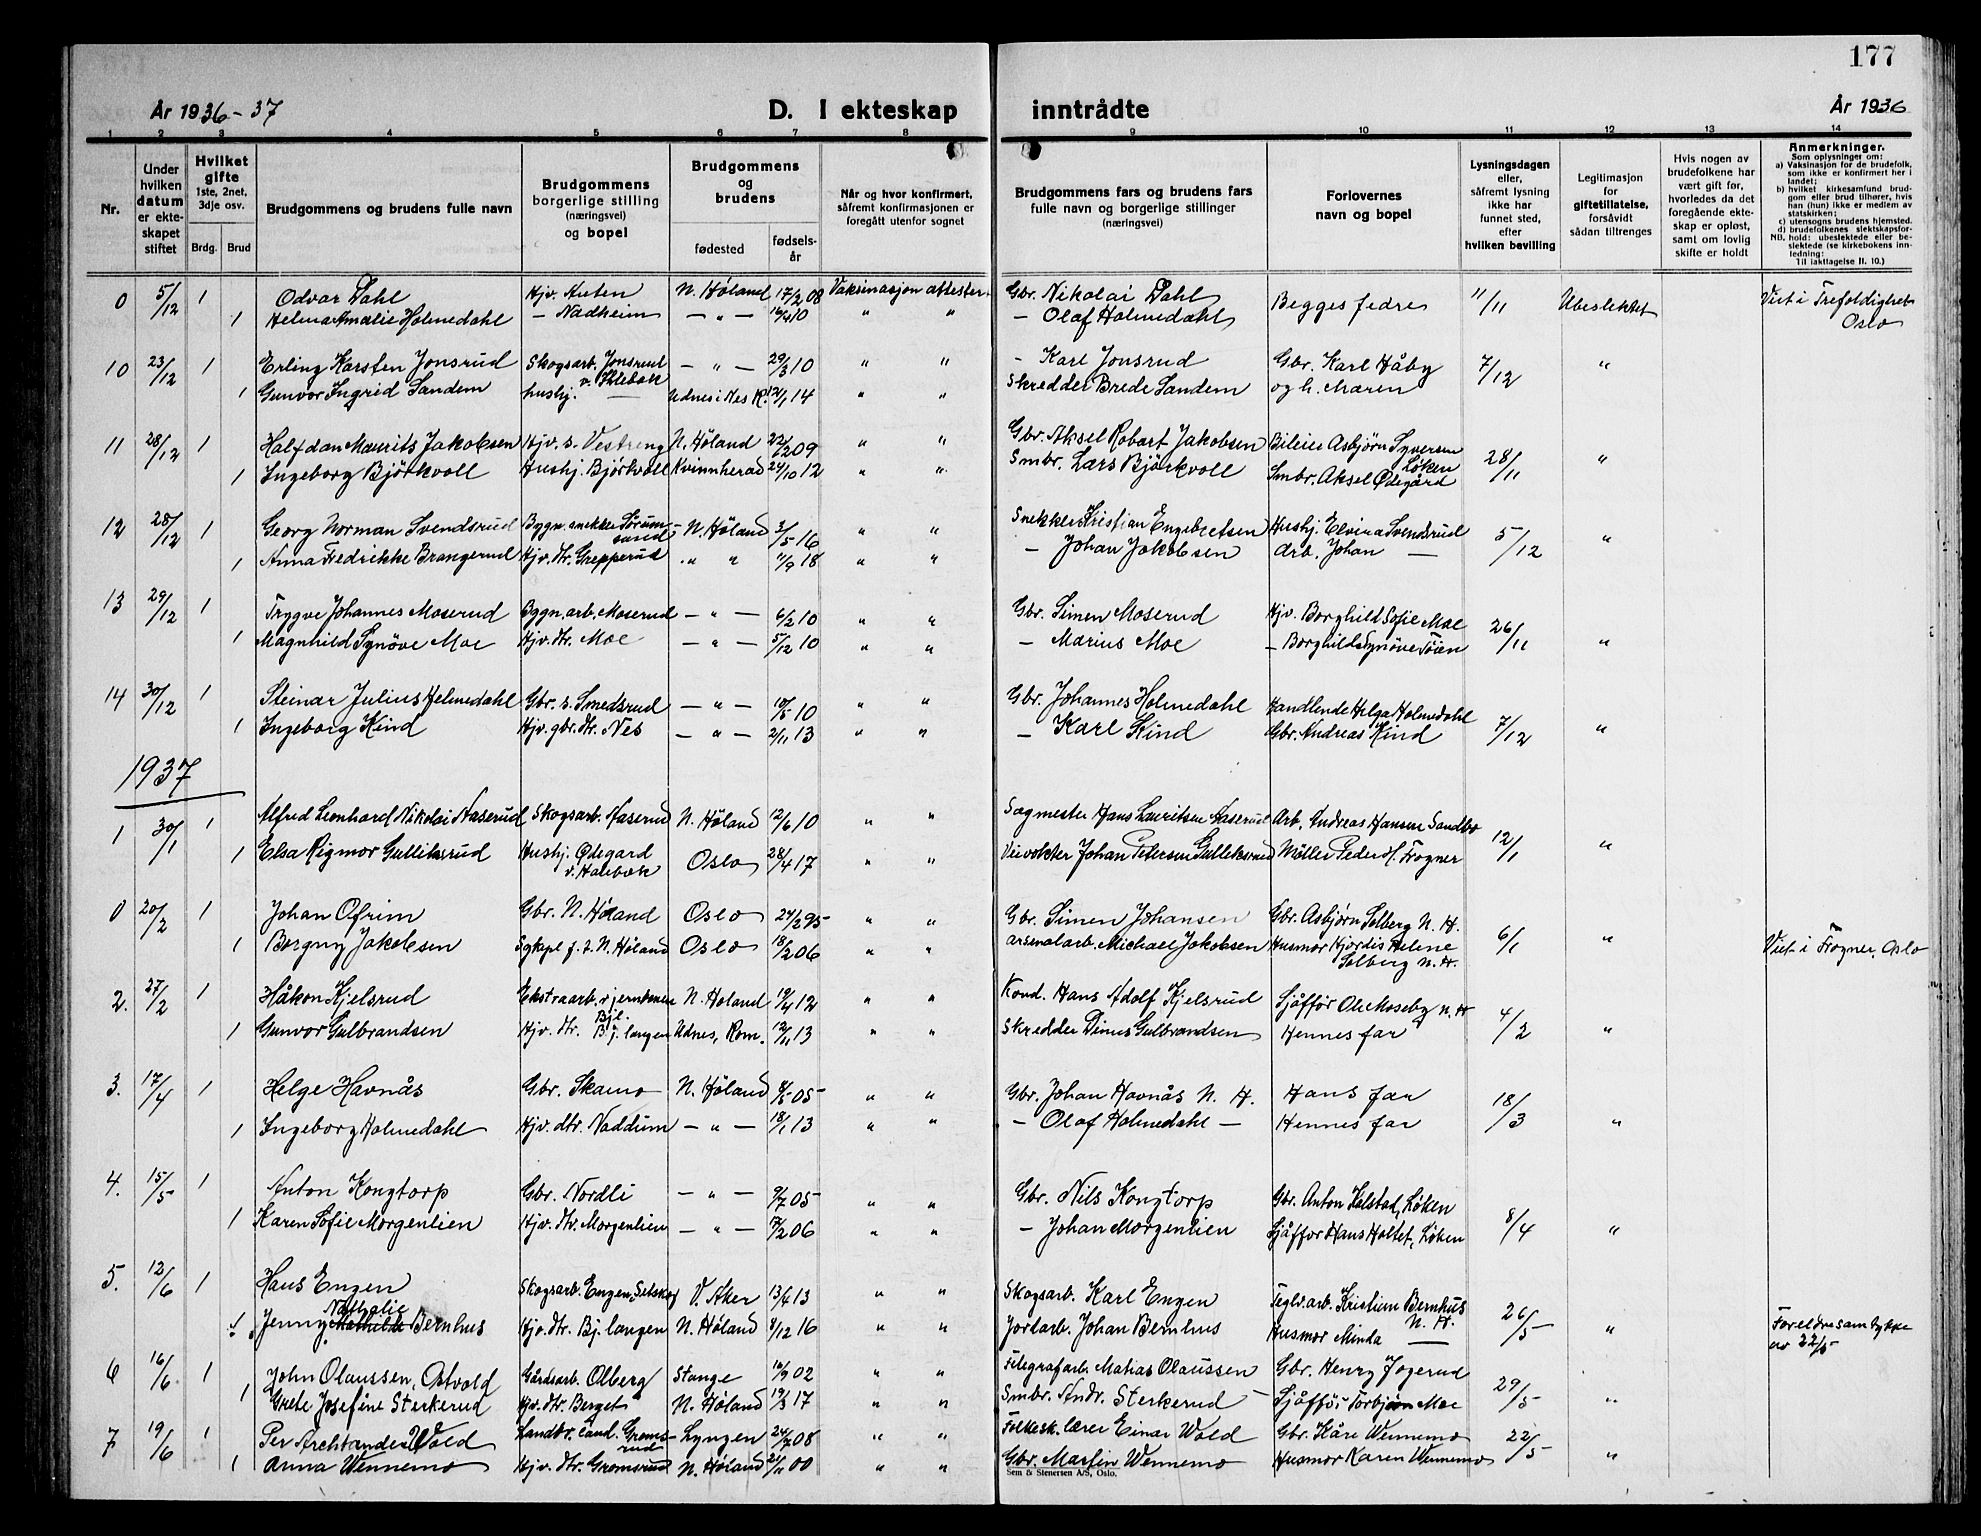 177
År 1936-37
D. I ekteskap inntrådte
År 1936
1 2 3 4 5 6 7 8 9 10 11 12 13 14
Nr.
Under hvilken datum er ekteskapet stiftet
Hvilket gifte 1ste, 2net, 3dje osv.
Brdg. Brud
Brudgommens og brudens fulle navn
Brudgommens borgerlige stilling (næringsvei) og bopel
Brudgommens og brudens
fødested
fødselsår
Når og hvor konfirmert, såfremt konfirmasjonen er foregått utenfor sognet
Brudgommens fars og brudens fars fulle navn og borgerlige stillinger (næringsvei)
Forlovernes navn og bopel
Lysningsdagen eller, såfremt lysning ikke har funnet sted, efter hvilken bevilling
Legitimasjon for giftetillatelse, forsåvidt sådan tiltrenges
Hvis nogen av brudefolkene har vært gift før, hvorledes da det foregående ekteskap er opløst, samt om lovlig skifte er holdt
Anmerkninger.
Som oplysninger om:
a) Vaksinasjon for de brudefolk, som ikke er konfirmert her i landet;
b) hvilket kirkesamfund brudgom eller brud tilhører, hvis han (hun) ikke er medlem av statskirken;
c) utensogns brudens hjemsted.
d) brudefolkenes slektskapsforhold: ubeslektede eller beslektede (se kirkebokens innledning:
NB.
Til iakttagelse II. 10.)
0 5/12 1 Odvar Dahl Hjv. Auten N. Høland 17/2 08 Vaksinasjon attester. Gbr. Nikolai Dahl Begges fedre 11/11 Ubeslektet Viet i Trefoldighet Oslo
1 Helma Amalie Holmedahl — Nadheim — " — 16/4 10 " " — Olaf Holmedahl
10 23/12 1 Erling Karsten Jonsrud Skogsarb. Jonsrud — " — 29/3 10 " " — Karl Jonsrud Gbr. Karl Håby 7/12 "
1 Gunvor Ingrid Sandem hushj. — Udnes i Nes R. 12/1 14 " " Skredder Brede Sandem og h. Maren
11 28/12 1 Halfdan Maurits Jakobsen Hjv. s. Vestreng N. Høland 22/2 09 " " Gbr. Aksel Robart Jakobsen Bileier Asbjørn Syversen Løken 28/11 "
1 Ingeborg Bjørkvoll Hushj. Bjørkvoll Kvinnherad 24/10 12 " " Smbr. Lars Bjørkvoll Smbr. Aksel Ødegård
12 28/12 1 Georg Norman Svendsrud Bygn. snekker Sørumsand N. Høland 3/5 16 " " Snekker Kristian Engebretsen Hushj. Elvina Svendsrud 5/12 "
1 Anna Fredrikke Brangerud Hjv. dtr. Grepperud " " 11/9 18 " " — Johan Jakobsen Arb. Johan —
13 29/12 1 Trygve Johannes Moserud Bygn. arb. Moserud — " — 6/2 10 " " Gbr. Simen Moserud Hjv. Borghild Sofie Moe 26/11 "
1 Magnhild Synøve Moe Hjv. dtr. Moe — " — 5/12 10 " " — Marius Moe — Borghild Synøve Tøien
14 30/12 1 Steinar Julius Holmedahl Gbr. s. Smedsrud — " — 10/5 10 " " Gbr. Johannes Holmedahl Handlende Helga Holmedahl 7/12 "
1 Ingeborg Kind Hjv. gbr. dtr. Nes — " — 2/11 13 " " — Karl Kind Gbr. Andreas Kind
1937
1 30/1 1 Alfred Leonhard Nikolai Naserud Skogsarb. Naserud N. Høland 12/6 10 " " Sagmester Hans Lauritsen Naserud Arb. Andreas Hansen Sandbo 12/1 "
1 Elsa Rigmor Gulliksrud Hushj. Ødegard Oslo 28/4 17 " " Veivokter Johan Petersen Gulliksrud Møller Peder H. Frogner
0 20/2 1 Johan Ofrim Gbr. N. Høland Oslo 24/2 95 " " Gbr. Simen Johansen Gbr. Asbjørn Solberg N. H. 6/1 " Viet i Frogner, Oslo
1 Borgny Jakobsen Sykepl. f. t. N. Høland Oslo 18/2 06 " " arsenalarb. Michael Jakobsen Husmor Hjørdis Helene Solberg N. H.
2. 27/2 1 Håkon Kjelsrud Ekstraarb. v. jernbanen N. Høland 19/4 12 " " Kond. Hans Adolf Kjelsrud Sjåffør Ole Moseby N. H 4/2 "
1 Gunvor Gulbrandsen Hjv. dtr. Bj. langen Udnes, Rom. 12/11 13 " " Skredder Dinus Gulbrandsen Hennes far
3. 17/4 1 Helge Havnås Gbr. Skamo N. Høland 8/5 05 " " Gbr. Johan Havnås N. H. Hans far 18/3 "
1 Ingeborg Holmedahl Hjv. dtr. Naddum — " — 18/1 13 " " — Olaf Holmedahl — Hennes far
4. 15/5 1 Anton Kongtorp Gbr. Nordli — " — 9/7 05 " " Gbr. Nils Kongtorp Gbr. Anton Kelstad, Løken 8/4 "
1 Karen Sofie Morgenlien Hjv. dtr. Morgenlien — " — 7/2 06 " " — Johan Morgenlien Sjåffør Hans Holtet, Løken
5. 12/6 1 Hans Engen Skogsarb. Engen, Setskog V. Aker 13/4 13 " " Skogsarb. Karl Engen Teglv.arb. Kristian Bernhus N. H. 26/5 " Foreldresamtykke av 22/5
1 Jenny Nathalie Bernhus Hjv. dtr. Bj. langen N. Høland 8/12 16 " " Jordarb. Johan Bernhus Husmor Minda —
6 16/6 1 John Olaussen Ostvold Gårdsarb. Olberg Stange 16/9 02 " " Matias Olaussen Gbr. Henry Jogerud 29/5 "
1 Grete Josefine Sterkerud Hjv. dtr. Berget N. Høland 19/3 17 " " Smbr. Andr. Sterkerud Sjåffør Torbjørn Moe
7 19/6 1 Per Wold Landbr. cand. Gromsrud Lyngen 24/7 08 " " Folkesk. lærer Einar Wold Gbr. Kåre Wennemo 22/5 "
1 Anna Wennemo Hjv. dtr. Gromsrud N. Høland 21/11 00 " " Gbr. Martin Wennemo Husmor Karen Wennemo
Sem & Stenersen A/S, Oslo.